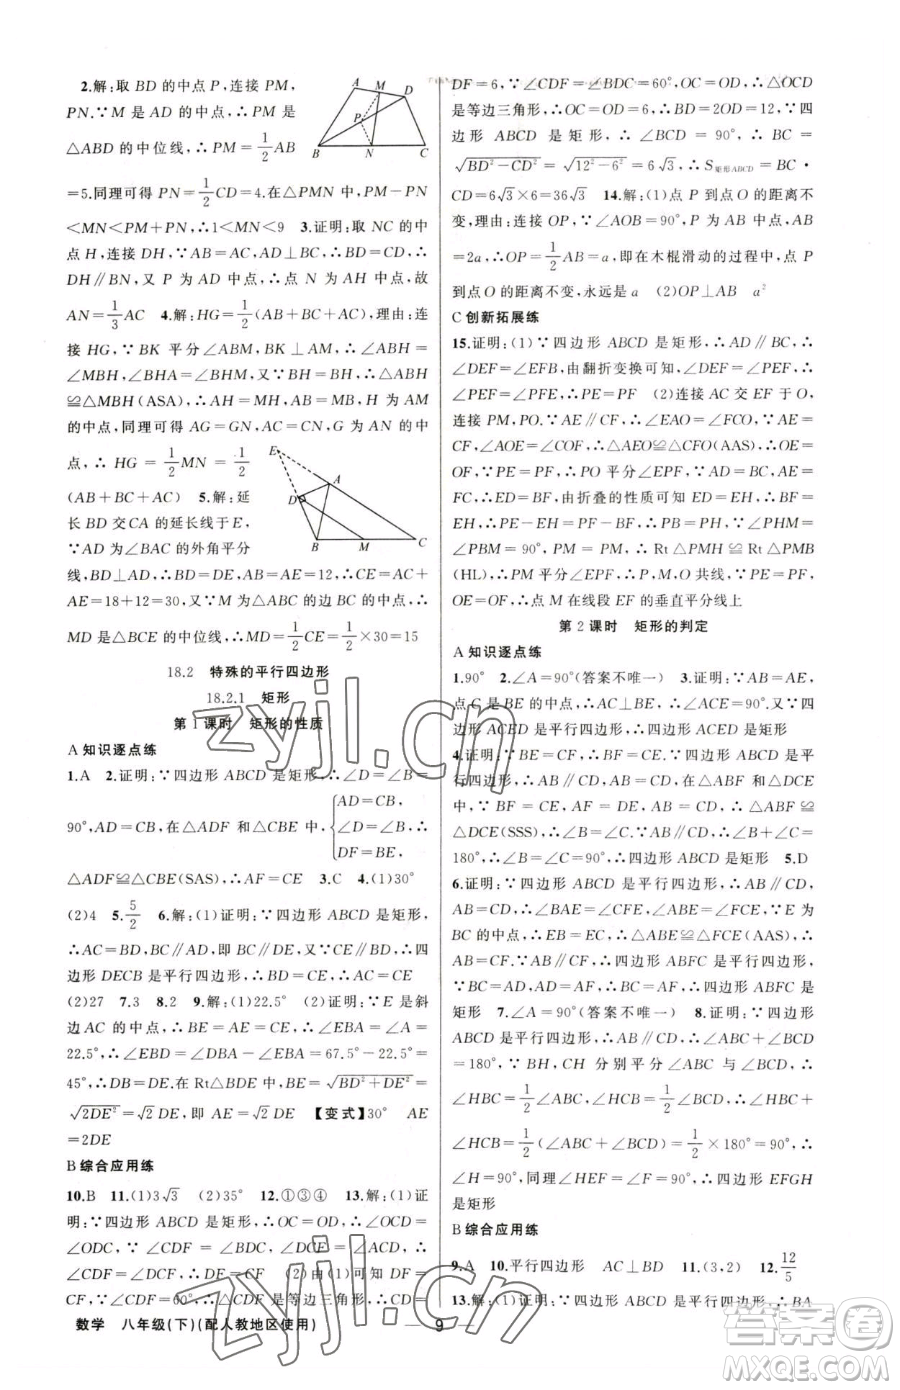 2.解:取 BD 的中点 P,连接 PM,
PN.∵M 是 AD 的中点,∴PM 是
△ABD 的中位线,∴PM=1/2AB
=5.同理可得 PN=1/2CD=4.在△PMN 中,PM-PN
<MN<PM+PN,∴1<MN<9 3.证明:取 NC 的中
点 H,连接 DH,∵AB=AC,AD⊥BC,∴BD=CD,∴
DH∥BN,又 P 为 AD 的中点,∴点 N 为 AH 中点,故
AN=1/3AC 4.解:HG=1/2(AB+BC+AC),理由:连
接 HG,∵BK 平分∠ABM,BK⊥AM,∴∠ABH=
∠MBH,∠BHA=∠MBH=90°,又∵BH=BH,∴△ABH
≌△MBH(ASA),∴AH=MH,AB=BM,∴H 为 AM
的中点,同理可得 AG=GN,AC=CN,∴G 为 AN 的中
点,∴HG=1/2MN=1/2
(AB+BC+AC) 5.解:延
长 BD 交CA 的延长线于E,
∵AD 为∠BAC 的外角平分
线,BD⊥AD,∴BD=DE,AB=AE=12,∴CE=AC+
AE=18+12=30,又∵M 为△ABC 的边 BC 的中点,∴
MD 是△BCE 的中位线,∴MD=1/2CE=1/2×30=15
A M D P B N C
E A D B M C
18.2 特殊的平行四边形
18.2.1 矩形
第 1 课时 矩形的性质
A 知识逐点练
1.A 2.证明:∵四边形 ABCD 是矩形,∴∠D=∠B=
90°,AD=CB,在△ADF 和△CBE 中,{AD=CB, ∠D=∠B, DF=BE, ∴
△ADF≌△CBE(SAS),∴AF=CE 3.C 4.(1)30°
(2)4 5.5/2 6.解:(1)证明:∵四边形 ABCD 是矩形,
∴AC=BD,BC∥AD,即 BC∥DE,又∵AC=DE,∴四
边形 DECB 是平行四边形,∴BD=CE,∴AC=CE
(2)27 7.3 8.2 9.解:(1)22.5° (2)证明:∵E 是斜
边 AC 的中点,∴BE=AE=CE,∴∠EBA=∠A=
22.5°,∴∠EBD=∠DBA-∠EBA=67.5°-22.5°=
45°,∴DB=DE,在 Rt△DBE 中,BE=√(BD²+DE²)=
√(2DE²)=√2DE,即 AE=√2DE 【变式】30° AE
=2DE
B 综合应用练
10.B 11.(1)3√3 (2)35° 12.①③④ 13.解:(1)证
明:∵四边形 ABCD 是矩形,∴OC=OD,∴∠OCD=
∠ODC,∵∠CDF=∠BDC,∠DCF=∠ACD,∴
∠CDF=∠DCF,∴DF=CF (2)由(1)可知 DF=
CF,∵∠CDF=60°,∴△CDF 是等边三角形,∴CD=
DF=6,∵∠CDF=∠BDC=60°,OC=OD,∴△OCD
是等边三角形,∴OC=OD=6,∴BD=2OD=12,∵四
边形 ABCD 是矩形,∴∠BCD=90°,∴BC=
√(BD²-CD²)=√(12²-6²)=6√3,∴S矩形ABCD=BC·
CD=6√3×6=36√3 14.解:(1)点 P 到点 O 的距离不
变,理由:连接 OP,∵∠AOB=90°,P 为 AB 中点,AB
=2a,∴OP=1/2AB=a,即在木棍滑动的过程中,点 P
到点 O 的距离不变,永远是 a (2)OP⊥AB a²
C 创新拓展练
15.证明:(1)∵四边形 ABCD 是矩形,∴AD∥BC,∴
∠DEF=∠EFB,由翻折变换可知,∠DEF=∠PEF,∴
∠PEF=∠PFE,∴PE=PF (2)连接 AC 交 EF 于 O,
连接 PM,PO.∵AE∥CF,∴∠EAO=∠FCO,∵AE=
CF,∠AOE=∠COF,∴△AEO≌△CFO(AAS),∴OE=
OF,∵PE=PF,∴PO 平分∠EPF,∵PE=PF,AD=
BC,AE=FC,∴ED=BF,由折叠的性质可知 ED=EH,∴EH=BF=
EH,∴PE-EH=PF-BF,∴PB=PH,∵∠PHM=
∠PBM=90°,PM=PM,∴Rt△PMH≌Rt△PMB
(HL),∴PM 平分∠EPF,∴P,M,O 共线,∵PO⊥EF,
OE=OF,∴点 M 在线段 EF 的垂直平分线上
第 2 课时 矩形的判定
A 知识逐点练
1.90° 2.∠A=90°(答案不唯一) 3.证明:∵AB=AE,
点 C 是 BE 的中点,∴AC⊥BE,∴∠ACE=90°,又∵四
边形 ACED 是平行四边形,∴四边形 ACED 是矩形
4.证明:∵BE=CF,∴BF=CE,∵四边形 ABCD 是平
行四边形,∴AB∥CD,AB=CD,在△ABF 和△DCE
中,∵BF=CE,AB=CD,AF=DE,∴△ABF≌
△DCE(SSS),∴∠B=∠C,∵AB∥CD,∴∠B+∠C=
180°,∴∠B=∠C=90°,∴四边形 ABCD 是矩形 5.D
6.证明:∵四边形 ABCD 是平行四边形,∴AB∥CD,AB
=CD,∴∠BAE=∠CFE,∠ABE=∠FCE,∵E 为
BC 的中点,∴EB=EC,∴△ABE≌△FCE(AAS),∴AB=
CF,∵AB∥CF,∴四边形 ABFC 是平行四边形,
∵AD=BC,AD=AF,∴BC=AF,∴四边形 ABFC 是
矩形 7.∠A=90°(答案不唯一) 8.证明:∵四边形
ABCD 是平行四边形,∴AB∥CD,∴∠ABC+∠BCD
=180°,∵BH,CH 分别平分∠ABC 与∠BCD,∴
∠HBC=1/2∠ABC,∠HCB=1/2∠BCD,∴∠HBC+
∠HCB=1/2(∠ABC+∠BCD)=1/2×180°=90°,∴
∠H=90°,同理∠HEF=∠F=90°,∴四边形 EFGH
是矩形
B 综合应用练
9.A 10.平行四边形 AC⊥BD 11.(3,2) 12.12/5
13.证明:∵四边形 ABCD 是平行四边形,∴∠D=∠B,∴BA
数学 八年级(下)(配人教地区使用)
9
zyjl.cn
zyjl.cn
答案圈
MXQE.COM